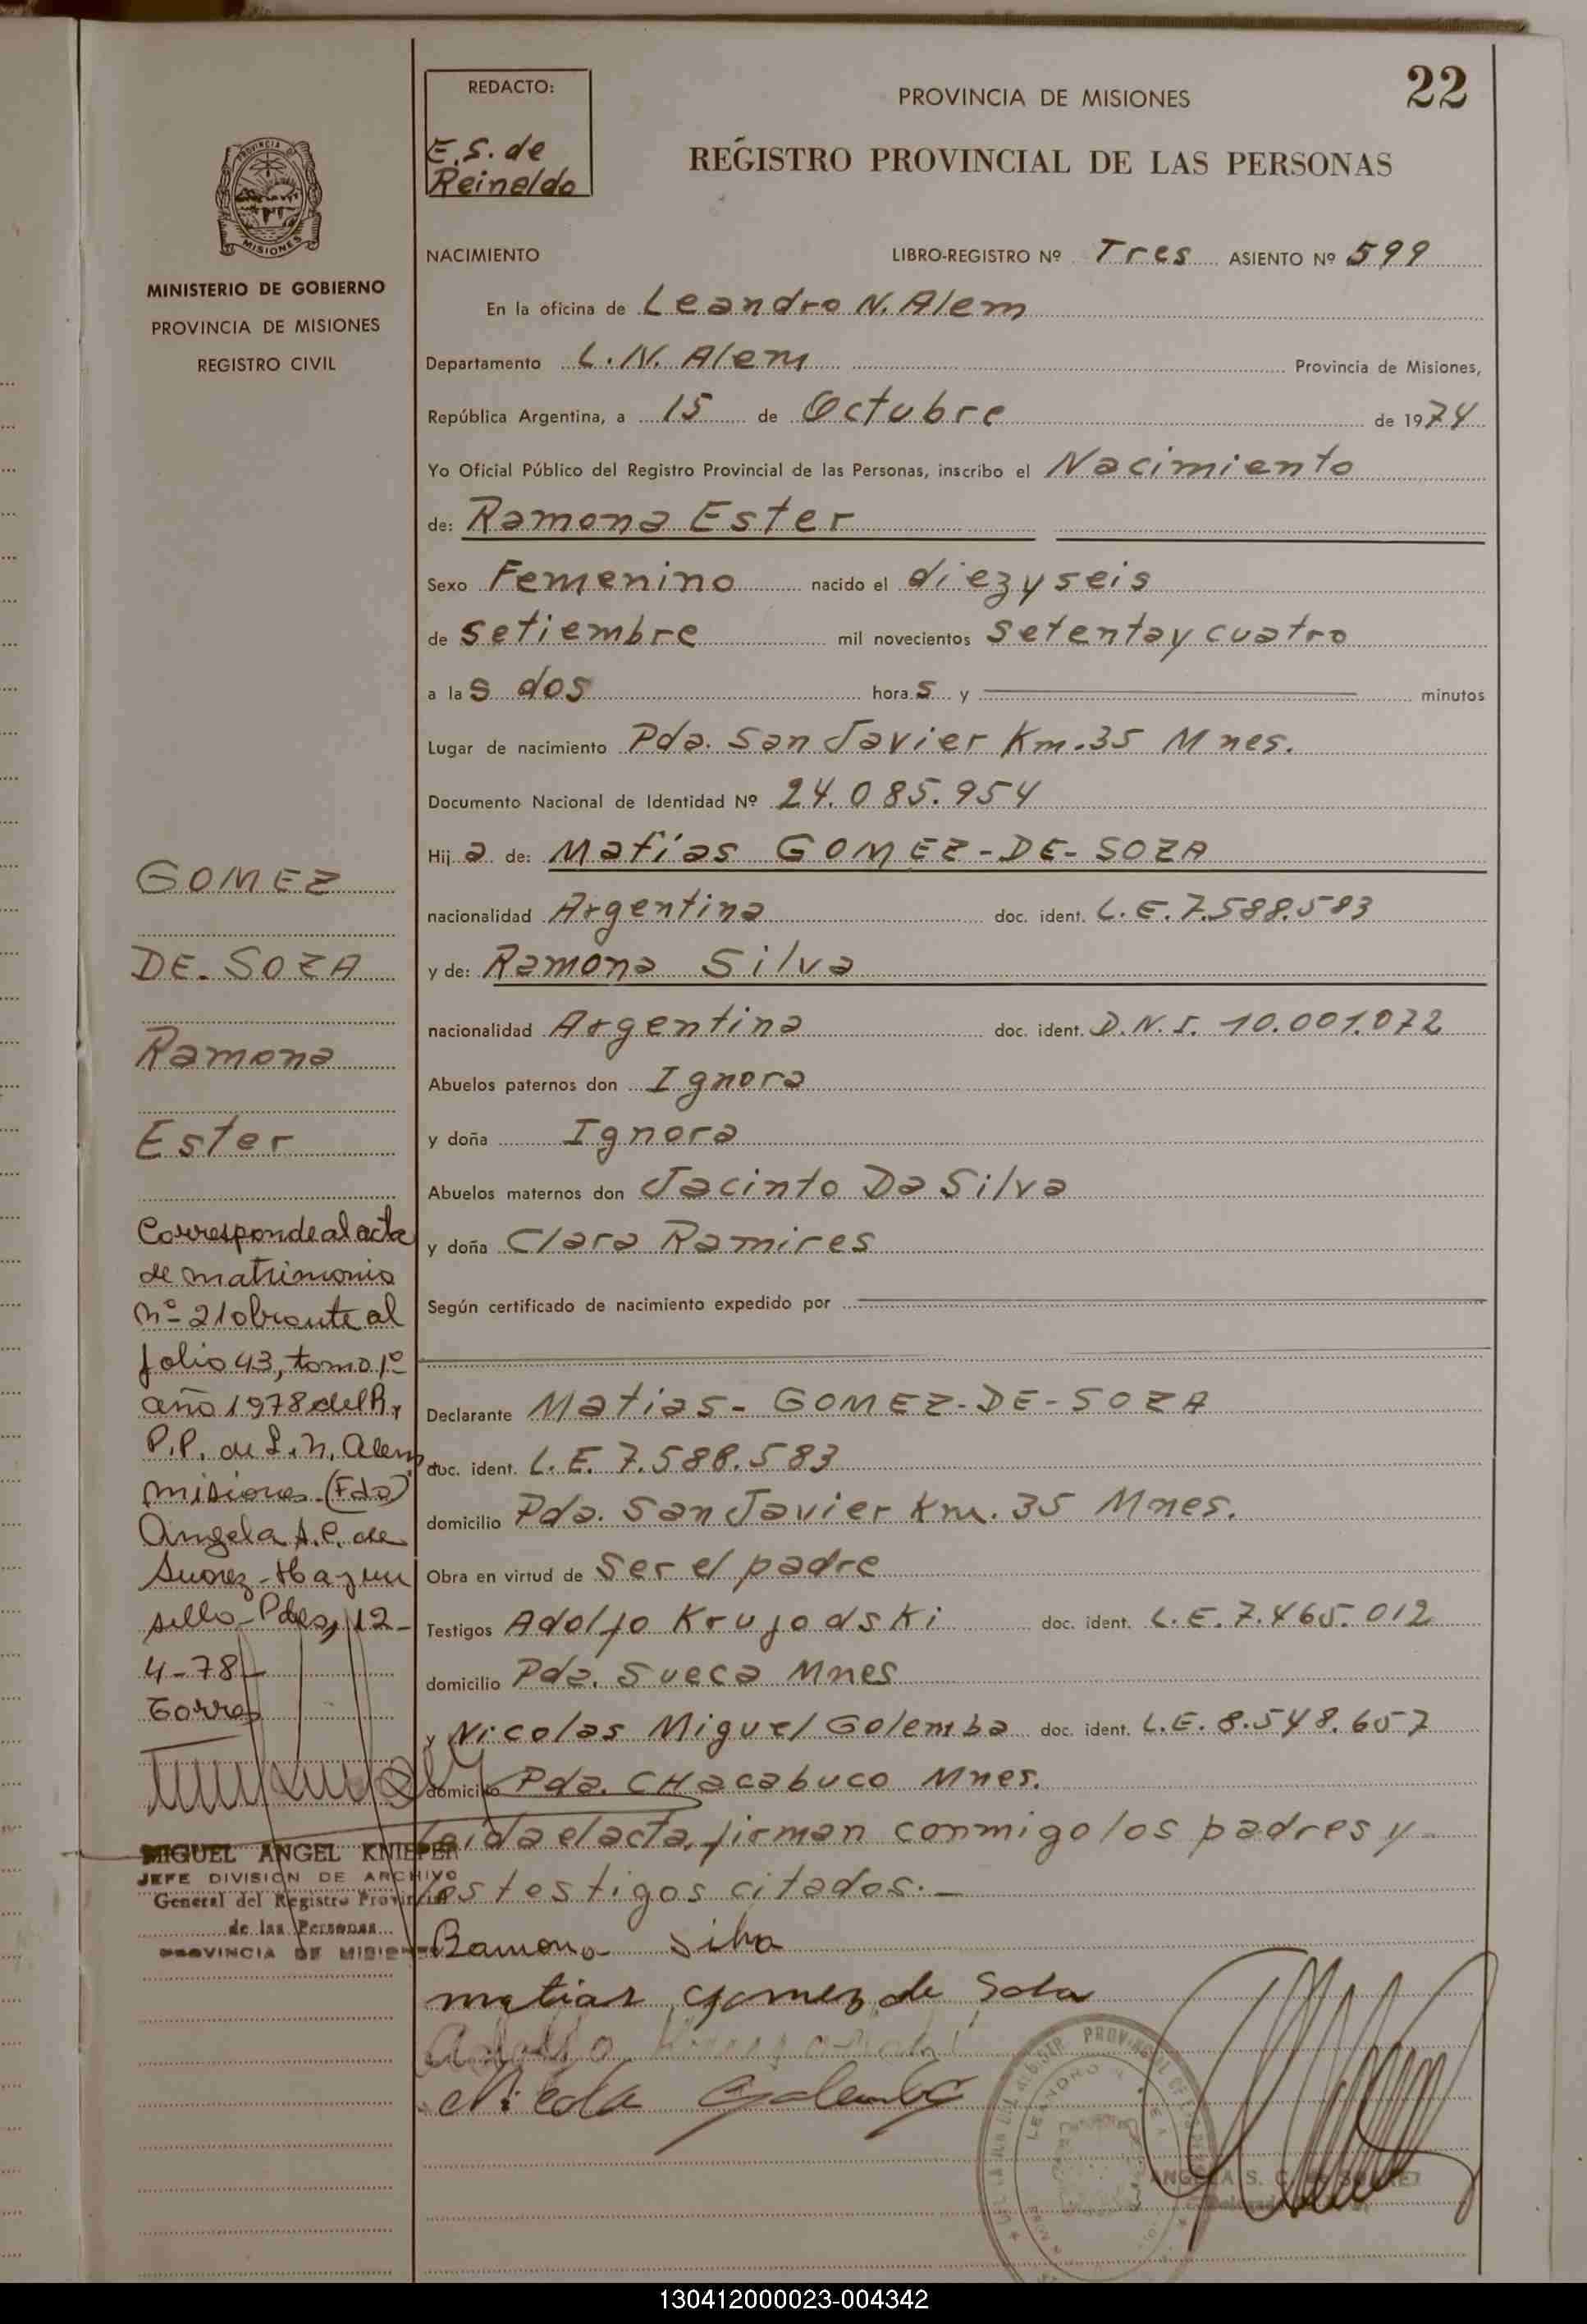 22
REDACTO:
E.S. de
Reineldo
PROVINCIA DE MISIONES
REGISTRO PROVINCIAL DE LAS PERSONAS
PROVINCIA DE
MISIONES
MINISTERIO DE GOBIERNO
PROVINCIA DE MISIONES
REGISTRO CIVIL
NACIMIENTO LIBRO-REGISTRO Nº Tres ASIENTO Nº 599
En la oficina de Leandro N. Alem
Departamento L.N. Alem Provincia de Misiones,
República Argentina, a 15 de Octubre de 1974
Yo Oficial Público del Registro Provincial de las Personas, inscribo el Nacimiento
de: Ramona Ester
Sexo Femenino nacido el diezyseis
de setiembre mil novecientos setentaycuatro
a las dos horas y minutos
Lugar de nacimiento Pda. San Javier Km.35 Mnes.
Documento Nacional de Identidad Nº 24.085.954
Hija de: Matías GOMEZ-DE-SOZA
nacionalidad Argentina doc. ident. L.E. 7.588.583
y de: Ramona Silva
nacionalidad Argentina doc. ident. D.N.I. 10.001.072
Abuelos paternos don Ignora
y doña Ignora
Abuelos maternos don Jacinto Da Silva
y doña Clara Ramires
Según certificado de nacimiento expedido por
Declarante Matias-GOMEZ-DE-SOZA
doc. ident. L.E. 7.588.583
domicilio Pda. San Javier Km. 35 Mnes.
Obra en virtud de ser el padre
Testigos Adolfo Krujodski doc. ident. L.E. 7.465.012
domicilio Pda. Sueca Mnes
y Nicolas Miguel Golemba doc. ident. L.E. 8.548.657
domicilio Pda. CHacabuco Mnes.
Leída el acta, firman conmigo los padres y
los testigos citados.-
Ramona Silva
matias gomez de Soza
Adolfo
Nicola Golemba
GOMEZ
DE-SOZA
Ramona
Ester
Corresponde al acta
de matrimonio
nº 21 obrante al
folio 43, tomo 1º
año 1978 del R.
P.P. de L.N. Alem
misiones. (Fdo)
Angela A.C. de
Suarez - Hay un
sello - Pdas, 12-
4-78-
Torres
MIGUEL ANGEL KNIEPER
JEFE DIVISION DE ARCHIVO
General del Registro Provincial
de las Personas
PROVINCIA DE MISIONES
PROVINCIAL
LEANDRO
ANGELA S. C. de SUAREZ
130412000023-004342